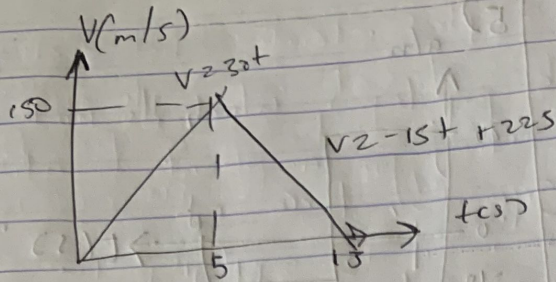 V(m/s)
V=30t
150
V=-15t+225
t(s)
5
15